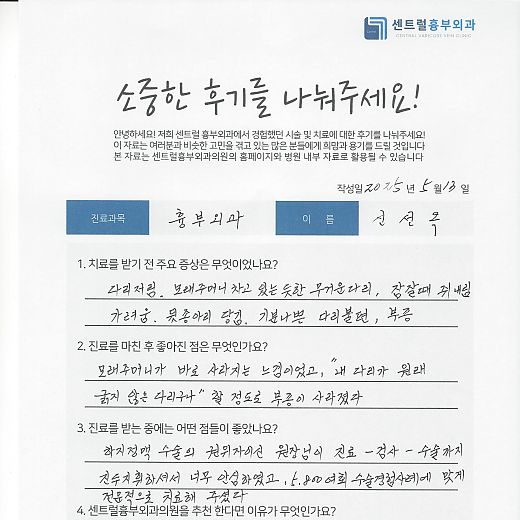 센트럴흉부외과
CENTRAL VARICOSE VEIN CLINIC
소중한 후기를 나눠주세요!
안녕하세요! 저희 센트럴 흉부외과에서 경험했던 시술 및 치료에 대한 후기를 나눠주세요!
이 자료는 여러분과 비슷한 고민을 겪고 있는 많은 분들에게 희망과 용기를 드릴 것입니다
본 자료는 센트럴흉부외과의원의 홈페이지와 병원 내부 자료로 활용될 수 있습니다
작성일 2025 년 5 월 13 일
진료과목 흉부외과 이 름 신선옥
1. 치료를 받기 전 주요 증상은 무엇이었나요?
다리저림. 모래주머니 차고 있는 듯한 무거운 다리, 잠잘때 쥐내림
가려움. 뒷종아리 당김. 기분나쁜 다리불편, 부종
2. 진료를 마친 후 좋아진 점은 무엇인가요?
모래주머니가 바로 사라지는 느낌이었고, "내 다리가 원래
굵지 않은 다리구나" 할 정도로 부종이 사라졌다
3. 진료를 받는 중에는 어떤 점들이 좋았나요?
하지정맥 수술의 권위자이신 원장님이 진료 - 검사 - 수술까지
진두지휘하셔서 너무 안심하였고, 5,800여회 수술경험사례에 맞게
전문적으로 치료해 주셨다
4. 센트럴흉부외과의원을 추천 한다면 이유가 무엇인가요?